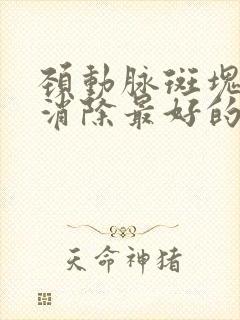 頚動脉斑塊
消除最好的
天命神猪